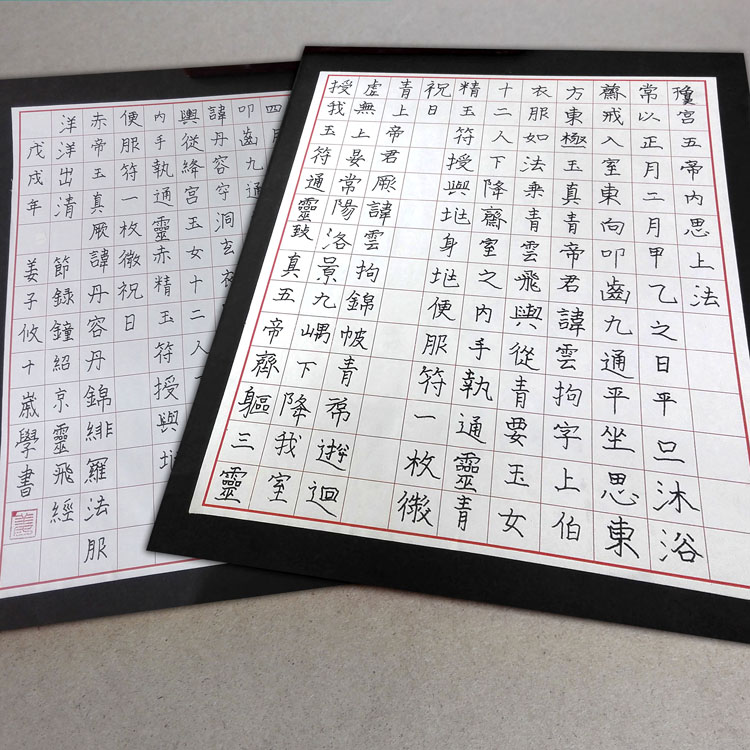 瓊宮五帝內思上法
常以正月二月甲乙之日平旦沐浴
齋戒入室東向叩齒九通平坐思東
方東極玉真青帝君諱雲拘字上伯
衣服如法乘青雲飛輿從青要玉女
十二人下降齋室之內手執通靈青
精玉符授與兆身兆便服符一枚微
祝曰
青上帝君厥諱雲拘錦帔青帬遊迴
虛無上晏常陽洛景九嵎下降我室
授我玉符通靈致真五帝齊軀三靈
四
叩齒九通
諱丹容字洞玄衣
輿從絳宮玉女十二人
內手執通靈赤精玉符授與兆
便服符一枚微祝曰
赤帝玉真厥諱丹容丹錦緋羅法服
洋洋出清 節録鐘紹京靈飛經
戊戌年 姜子攸十歲學書